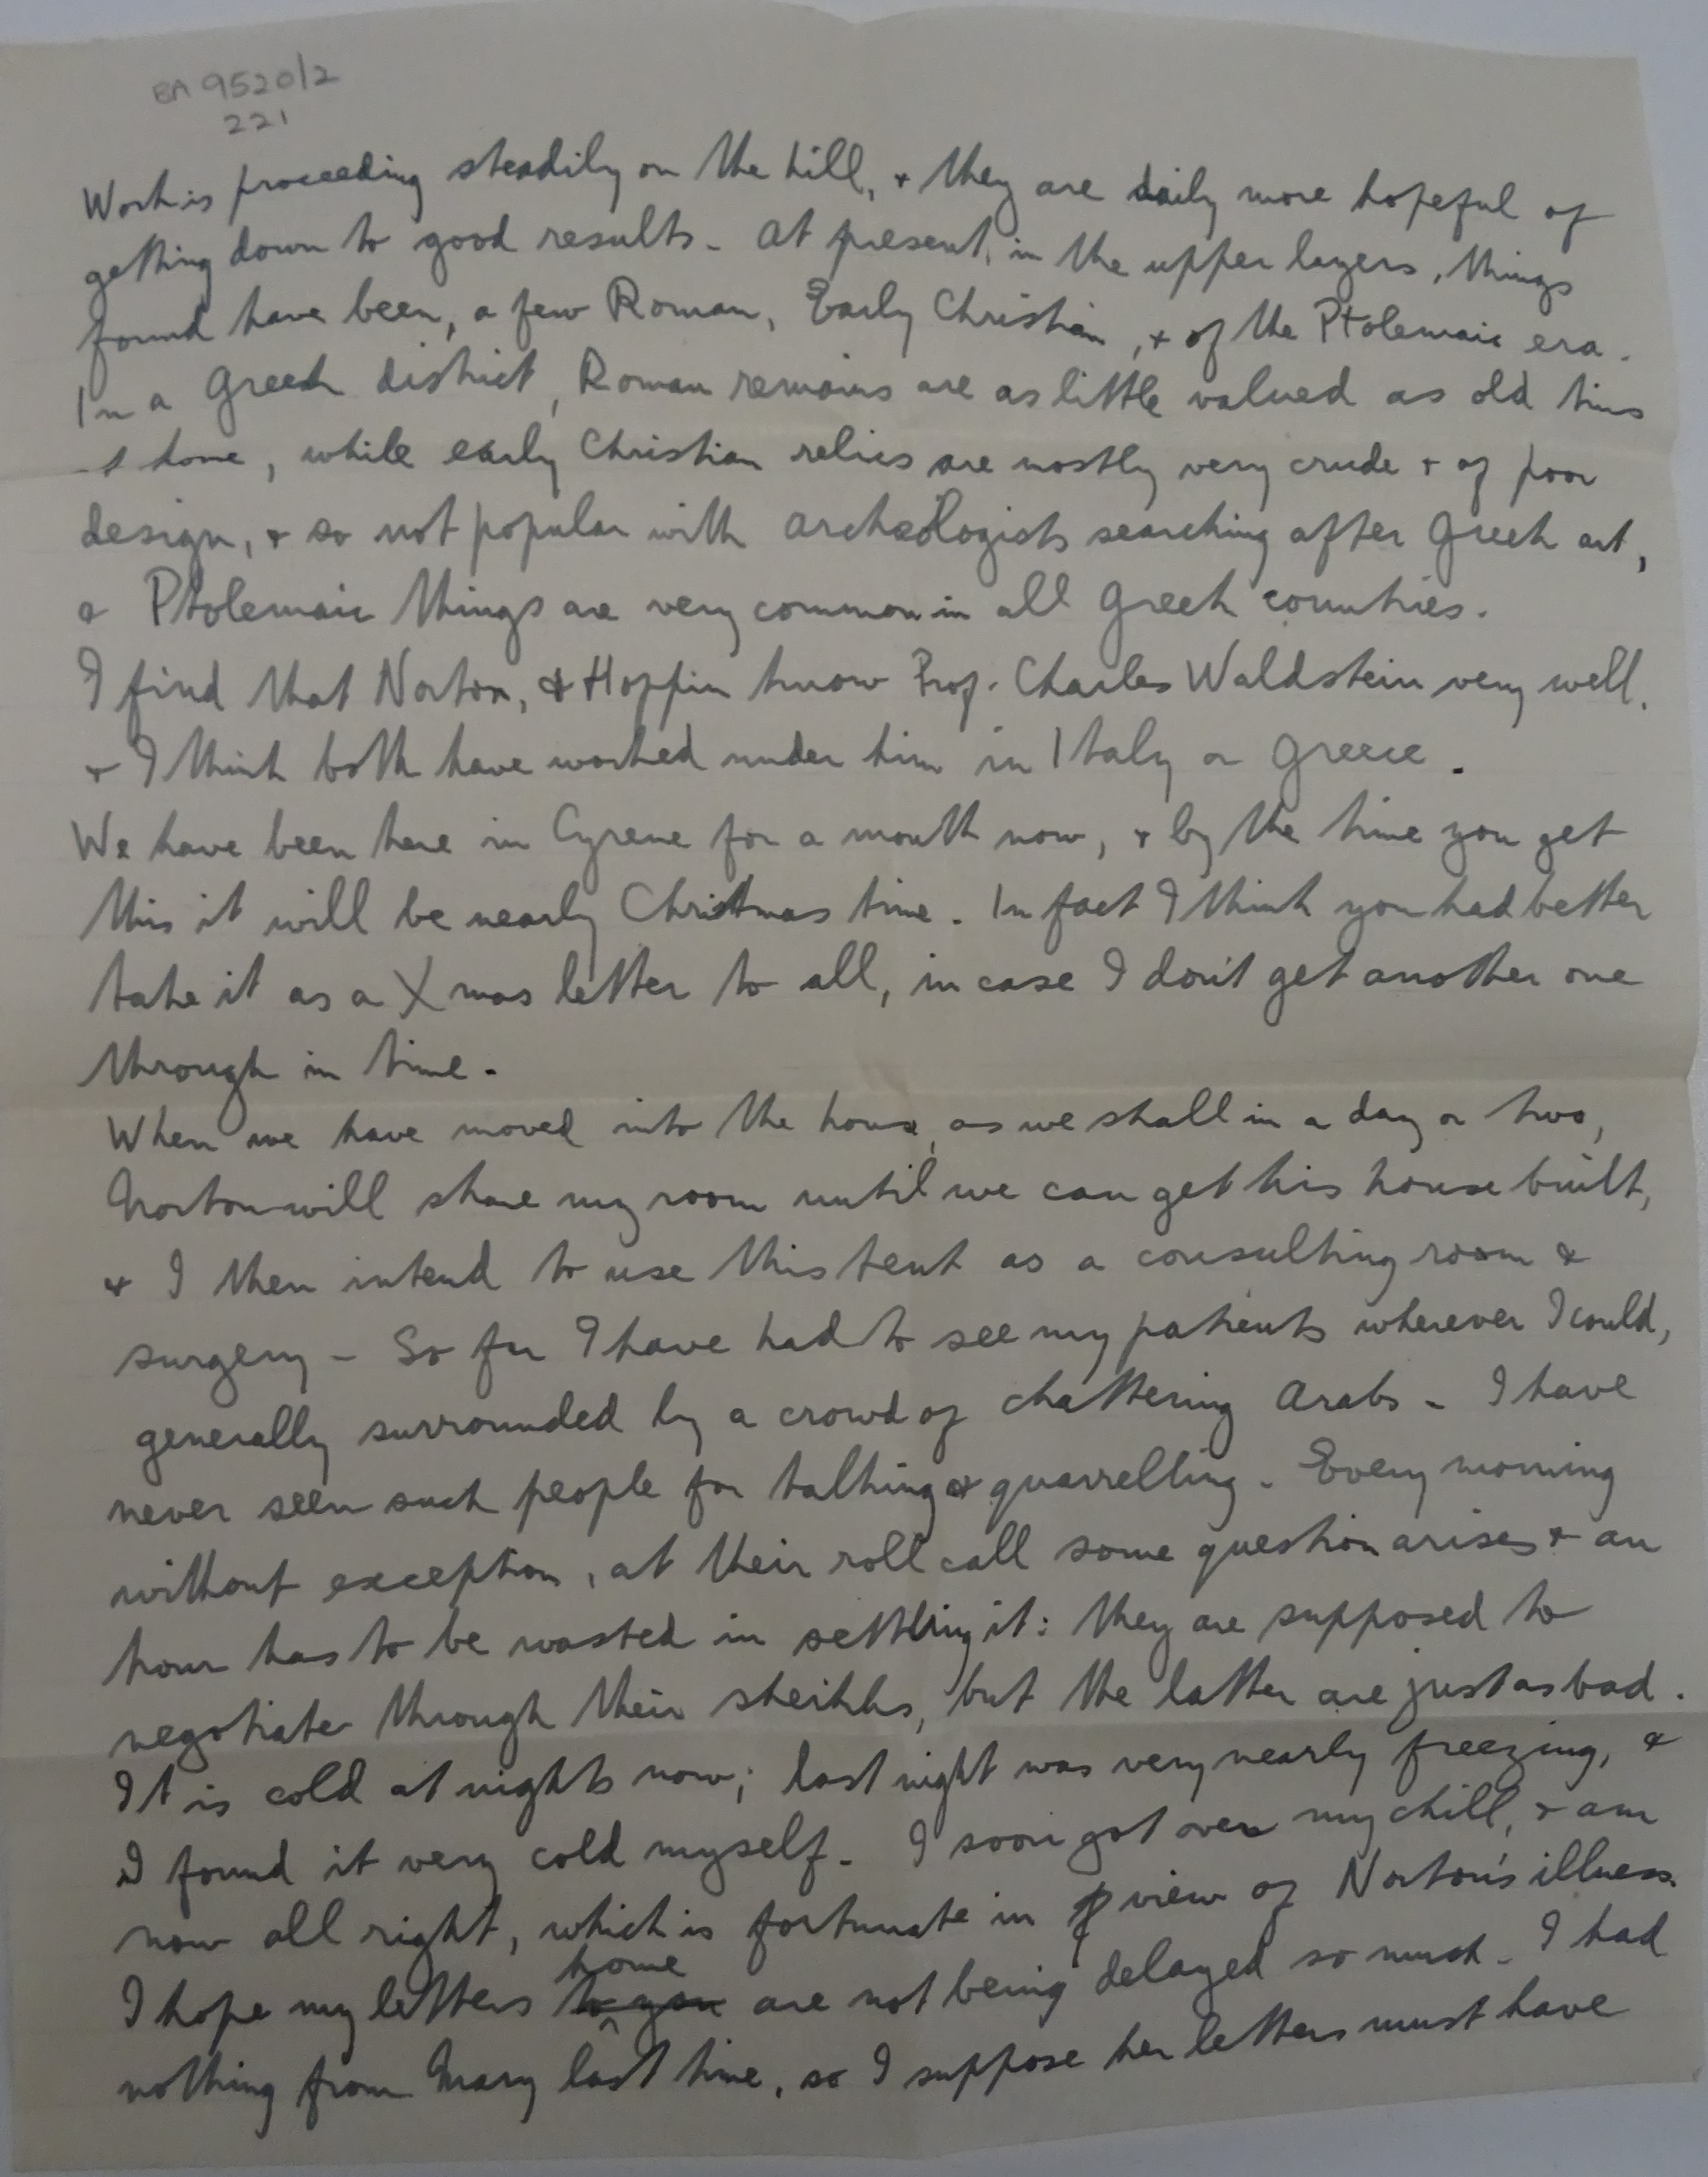 BA 9520/2
221
Work is proceeding steadily on the hill, & they are daily more hopeful of
getting down to good results - At present, in the upper layers, things
found have been, a few Roman, Early Christian, & of the Ptolemaic era.
In a Greek district, Roman remains are as little valued as old tins
at home, while early Christian relics are mostly very crude & of poor
design, & so not popular with archæologists searching after Greek art,
& Ptolemaic things are very common in all Greek countries.
I find that Norton, & Hoppin know Prof. Charles Waldstein very well.
& I think both have worked under him in Italy or Greece.
We have been here in Cyrene for a month now, & by the time you get
this it will be nearly Christmas time. In fact I think you had better
take it as a Xmas letter to all, in case I don't get another one
through in time.
When we have moved into the house, as we shall in a day or two,
Norton will share my room until we can get his house built,
& I then intend to use this tent as a consulting room &
surgery - So far I have had to see my patients wherever I could,
generally surrounded by a crowd of chattering Arabs - I have
never seen such people for talking & quarrelling. Every morning
without exception, at their roll call some question arises & an
hour has to be wasted in settling it: they are supposed to
negotiate through their sheikhs, but the latter are just as bad.
It is cold at nights now; last night was very nearly freezing, &
I found it very cold myself. I soon got over my chill, & am
now all right, which is fortunate in view of Norton's illness.
home
I hope my letters to you are not being delayed so much. I had
nothing from Mary last time, so I suppose her letters must have